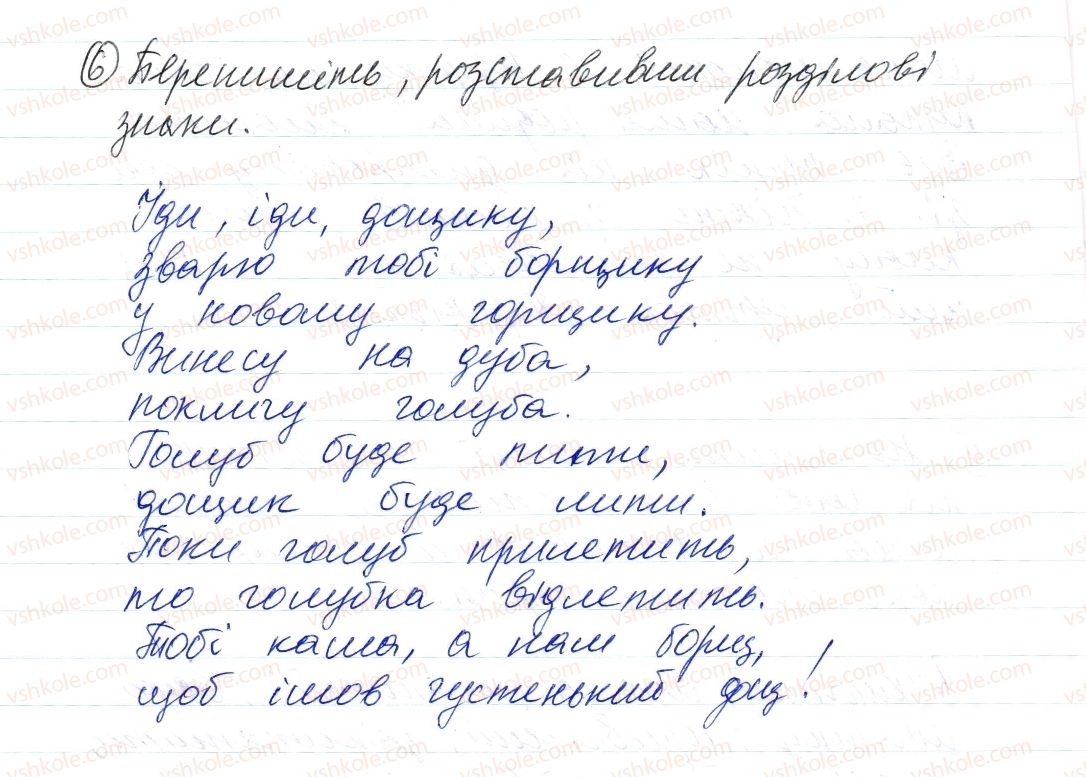 6 Перепишіть, розставивши розділові
знаки.
Іди, іди, дощику,
Зварю тобі борщику
у новому горщику.
Винесу на дуба,
покличу голуба.
Голуб буде пити,
дощик буде лити.
Поки голуб прилетить,
то голубка відлетить.
Тобі каша, а нам борщ,
щоб ішов густенький дощ!